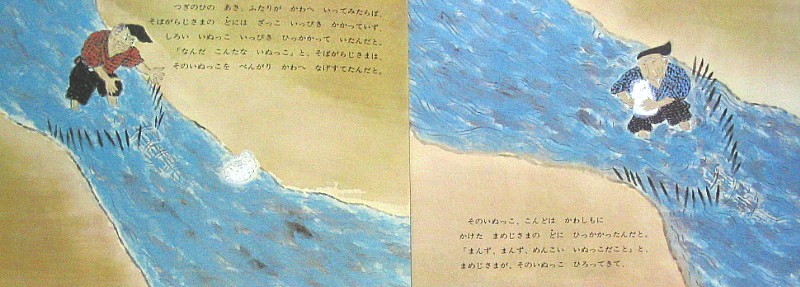 つぎのひの あさ、ふたりが かわへ いってみたらば、
そばがらじさまの どにには ざっこ いっぴき かかっていず、
しろい いぬっこ いっぴき ひっかかって いたんだと。
「なんだ こんたな いぬっこ」と、そばがらじさまは、
そのいぬっこを べんがり かわへ なげすてたんだと。
そのいぬっこ、こんどは かわしもに
かけた まめじさまの どに ひっかかったんだと。
「まんず、まんず、めんこい いぬっこだこと」と、
まめじさまが、そのいぬっこ ひろってきて、